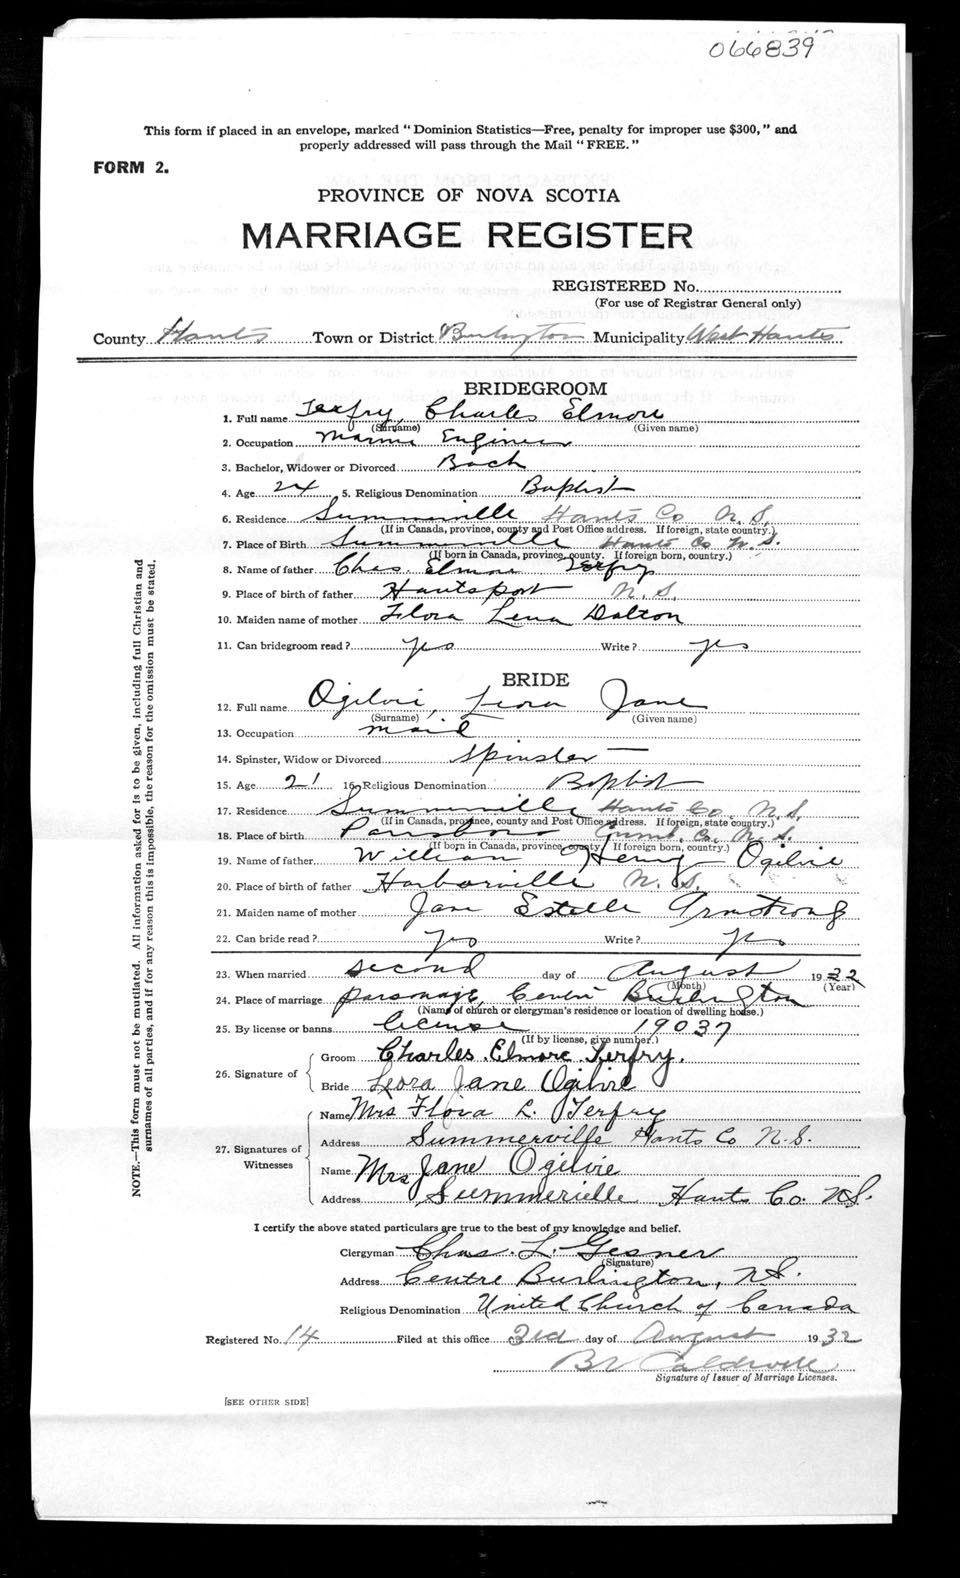 066839
This form if placed in an envelope, marked "Dominion Statistics—Free, penalty for improper use $300," and
properly addressed will pass through the Mail "FREE."
FORM 2.
PROVINCE OF NOVA SCOTIA
MARRIAGE REGISTER
REGISTERED No.
(For use of Registrar General only)
County Hants Town or District Burlington Municipality West Hants
BRIDEGROOM
1. Full name Terfry Charles Elmore
(Surname) (Given name)
2. Occupation Marine Engineer
3. Bachelor, Widower or Divorced Bach
4. Age 24 5. Religious Denomination Baptist
6. Residence Summerville Hants Co N.S.
(If in Canada, province, county and Post Office address. If foreign, state country.)
7. Place of Birth Summerville Hants Co N.S.
(If born in Canada, province, county. If foreign born, country.)
8. Name of father Chas. Elmore Terfry
9. Place of birth of father Hantsport N.S.
10. Maiden name of mother Flora Lena Dalton
11. Can bridegroom read? yes Write? yes
BRIDE
12. Full name Ogilvie, Leora Jane
(Surname) (Given name)
13. Occupation maid
14. Spinster, Widow or Divorced Spinster
15. Age 21 16. Religious Denomination Baptist
17. Residence Summerville Hants Co. N.S.
(If in Canada, province, county and Post Office address. If foreign, state country.)
18. Place of birth Parrsboro Cumb. Co. N.S.
(If born in Canada, province, county. If foreign born, country.)
19. Name of father William Henry Ogilvie
20. Place of birth of father Harborville N.S.
21. Maiden name of mother Jane Estelle Armstrong
22. Can bride read? yes Write? yes
23. When married second day of August 1932
(Month) (Year)
24. Place of marriage parsonage, Centre Burlington
(Name of church or clergyman's residence or location of dwelling house.)
25. By license or banns license 19037
(If by license, give number.)
26. Signature of
Groom Charles Elmore Terfry.
Bride Leora Jane Ogilvie
27. Signatures of Witnesses
Name Mrs Flora L. Terfry
Address Summerville Hants Co N.S.
Name Mrs Jane Ogilvie
Address Summerville Hants Co. N.S.
I certify the above stated particulars are true to the best of my knowledge and belief.
Clergyman Chas. L. Gesner
(Signature)
Address Centre Burlington, N.S.
Religious Denomination United Church of Canada
Registered No. 14 Filed at this office 3rd day of August 1932
Caldwell
Signature of Issuer of Marriage Licenses.
[SEE OTHER SIDE]
NOTE.—This form must not be mutilated. All information asked for is to be given, including full Christian and
surnames of all parties, and if for any reason this is impossible, the reason for the omission must be stated.